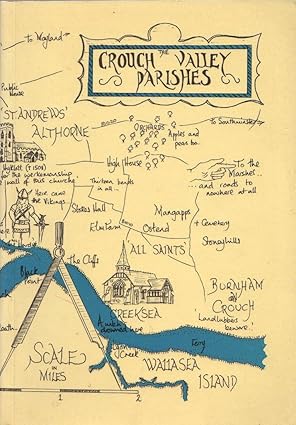 THE
CROUCH VALLEY
PARISHES
To Mayland
Public
House
ST ANDREWS'
ALTHORNE
ORCHARDS
Apples and
pears too..
To Southminster
High House
To the
Marshes...
.... and roads to
nowhere at all
Thirteen hands
in all..
wall of this church
Here came
the Vikings.
Stokes Hall
Elm Farm
Mangapps
Ostend
+ Cemetery
Stoneyhills
'ALL SAINTS'
Black
Point
The Cliffs
CREEKSEA
BURNHAM
on
CROUCH
Landlubbers
beware!
Creek
Ferry
WALLASEA
ISLAND
SCALE
IN
MILES
1
2